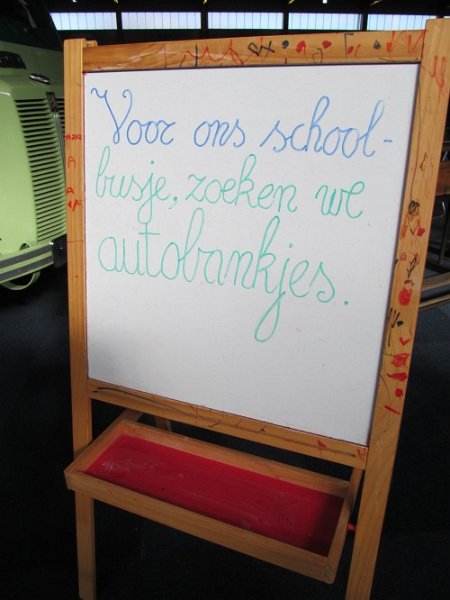 Voor ons school-
busje, zoeken we
autobankjes.